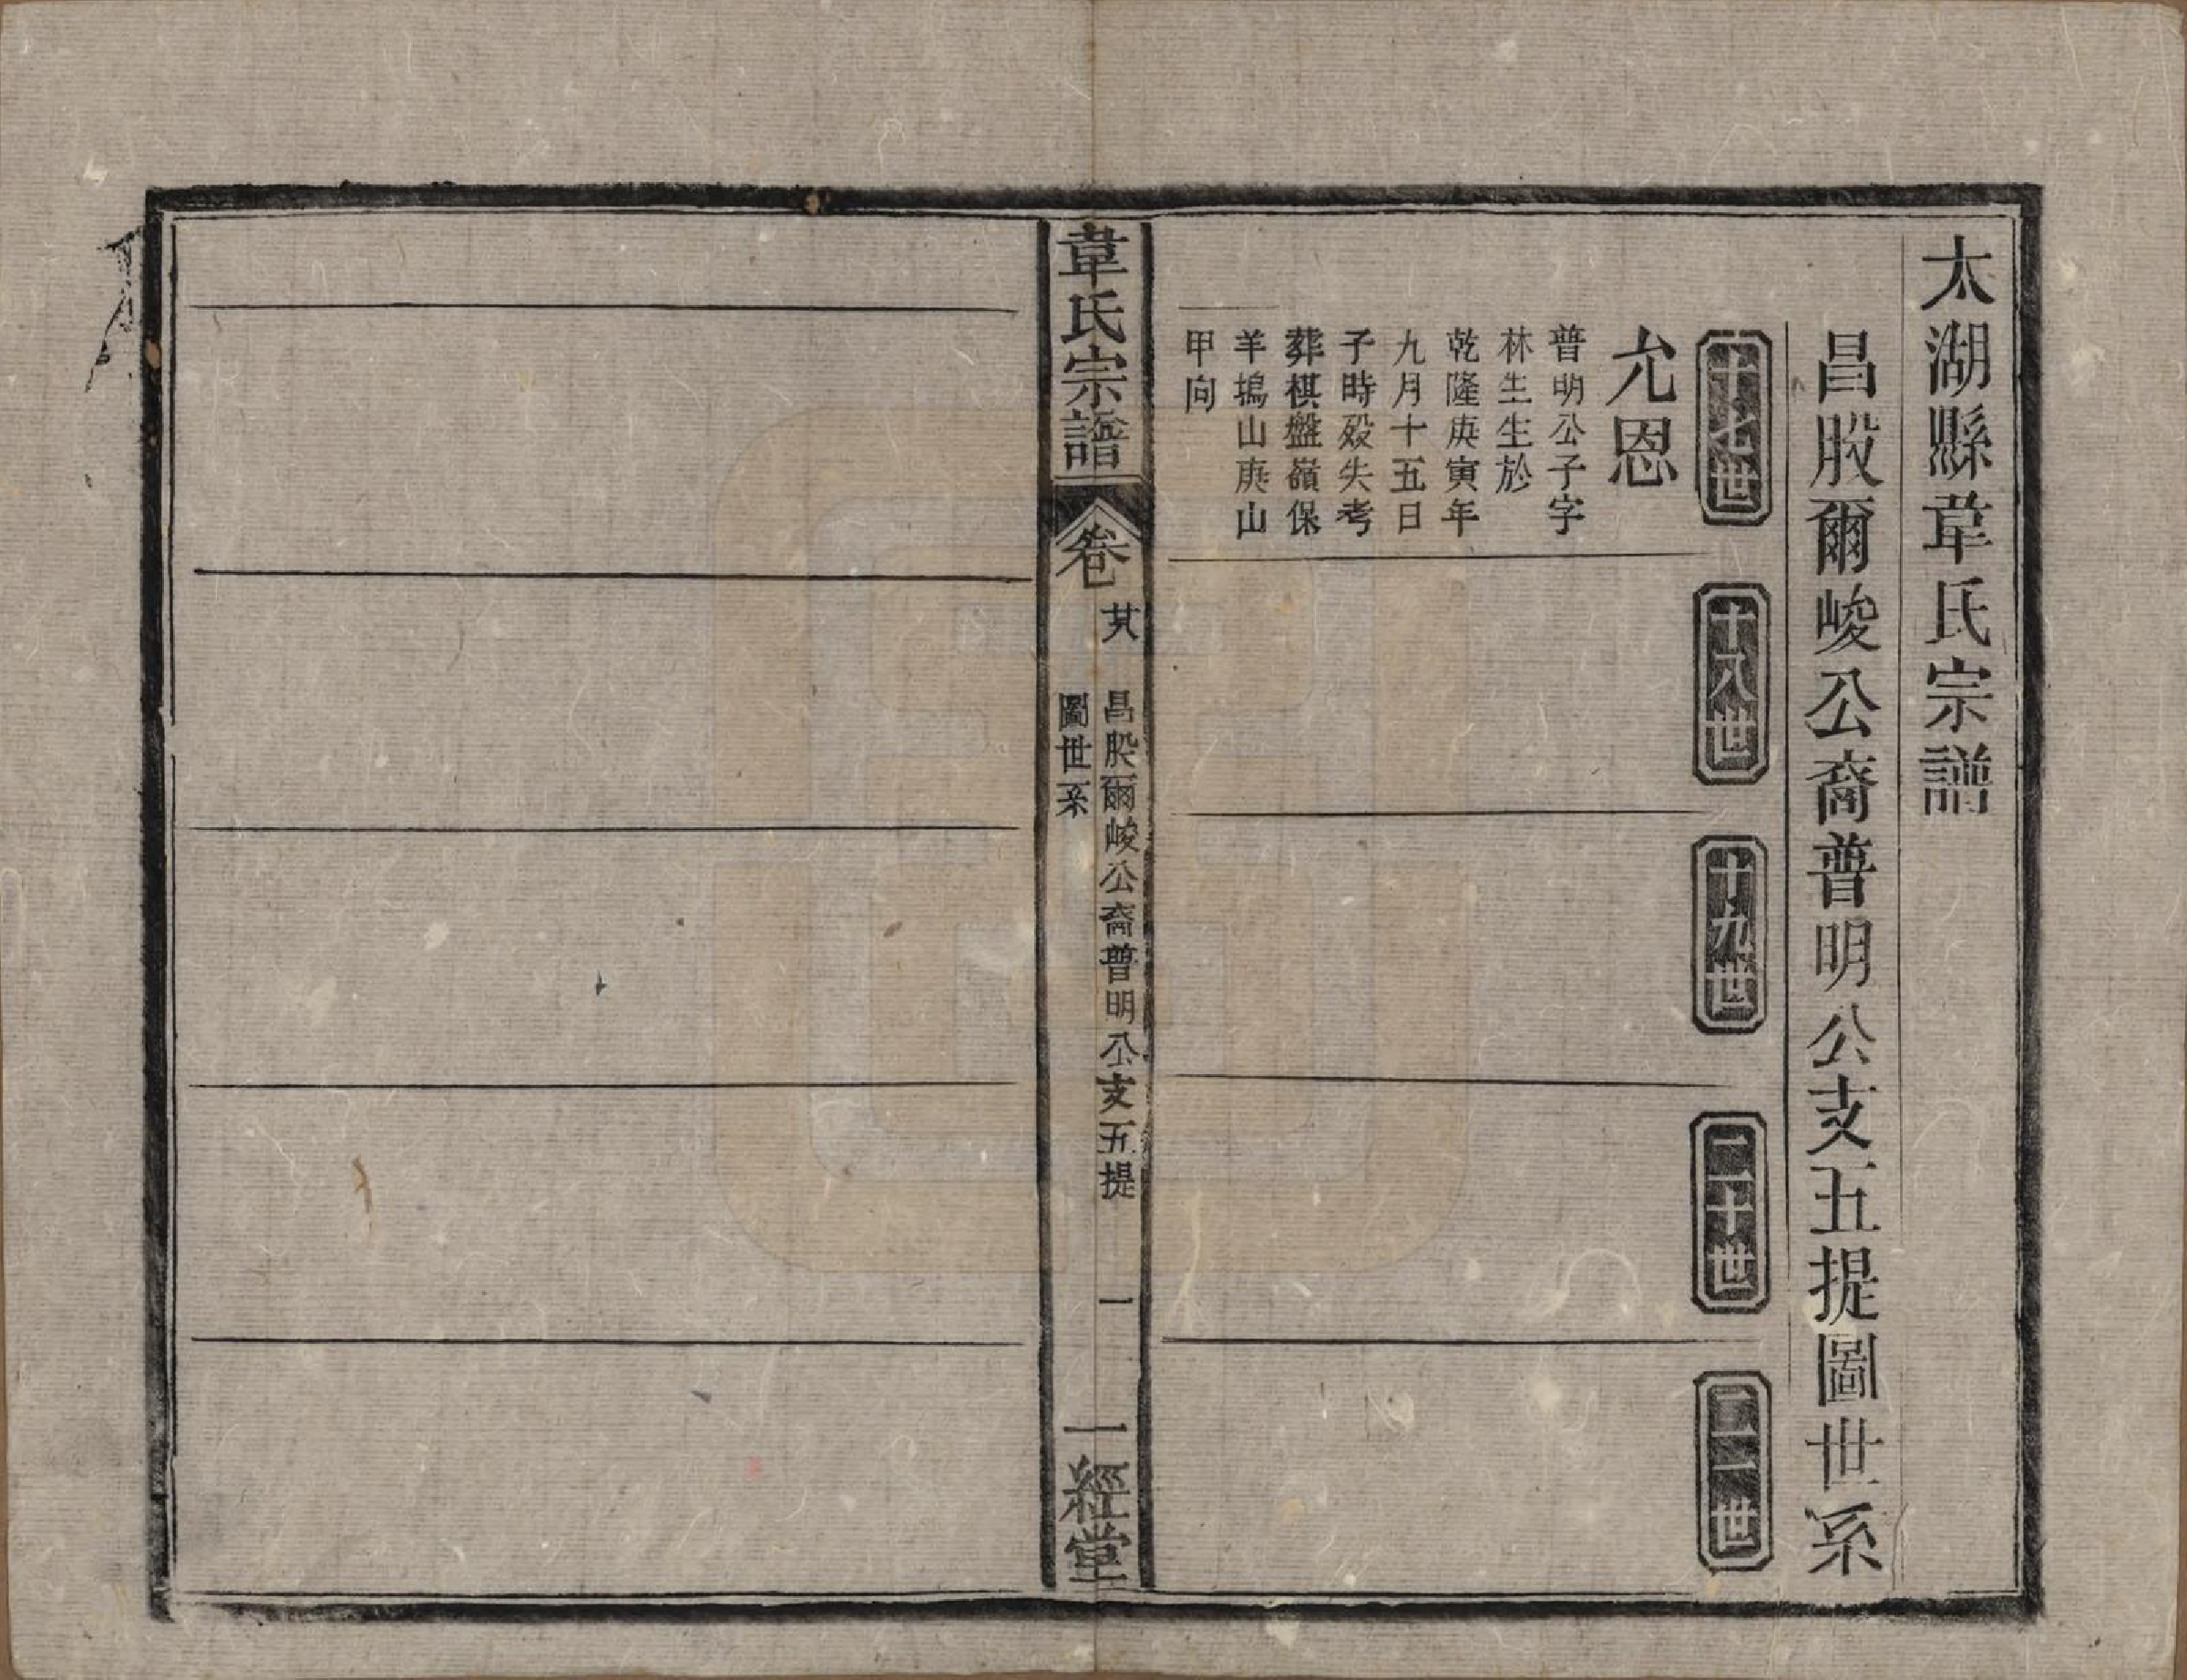 太湖縣韋氏宗譜
昌股爾峻公裔普明公支五提圖世系
十七世
十八世
十九世
二十世
二一世
允恩
普明公子字
林生生於
乾隆庚寅年
九月十五日
子時殁失考
葬棋盤嶺保
羊塢山庚山
甲向
韋氏宗譜
卷
昌股爾峻公裔普明公支五提
圖世系
一
一經堂